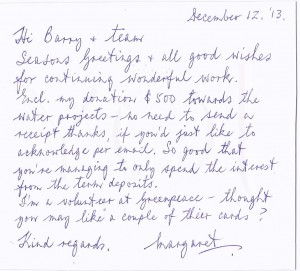 December 12. '13.
Hi Barry & team
Seasons Greetings & all good wishes
for continuing wonderful work.
Encl. my donation $500 towards the
water projects – no need to send a
receipt thanks, if you'd just like to
acknowledge per email. So good that
you're managing to only spend the interest
from the term deposits.
I'm a volunteer at Greenpeace – thought
you may like a couple of thier cards?
Kind regards. Margaret